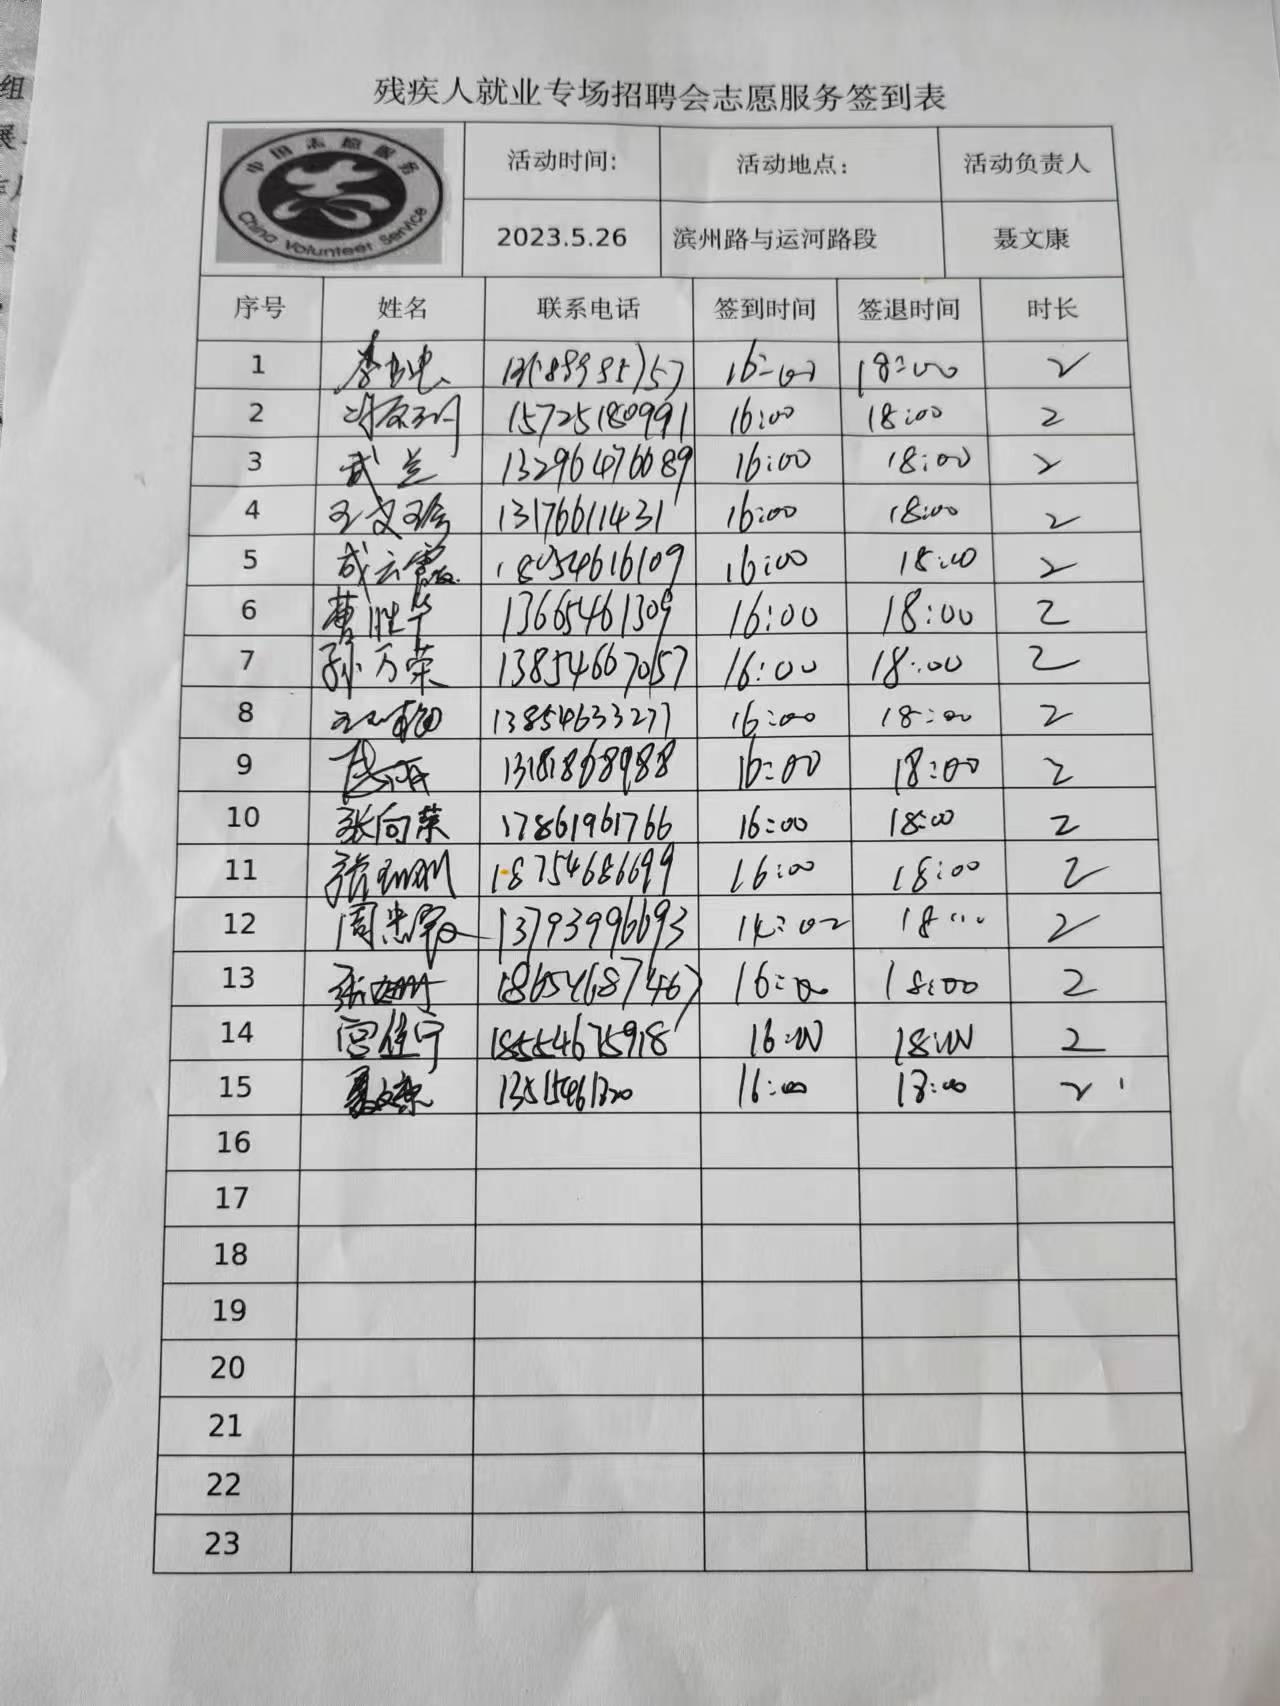 组
展
残疾人就业专场招聘会志愿服务签到表
中国志愿服务
China Volunteer Service
活动时间: 活动地点: 活动负责人
2023.5.26 滨州路与运河路段 聂文康
序号 姓名 联系电话 签到时间 签退时间 时长
1 16:00 18:00 2
2 15725180991 16:00 18:00 2
3 武兰 13296476689 16:00 18:00 2
4 王文珍 13176611431 16:00 18:00 2
5 成云霞 18054616109 16:00 18:00 2
6 曹胜华 13665461309 16:00 18:00 2
7 孙万荣 13854667057 16:00 18:00 2
8 13854633277 16:00 18:00 2
9 13181868988 16:00 18:00 2
10 张向荣 17861961766 16:00 18:00 2
11 张珊珊 18754686699 16:00 18:00 2
12 周忠 13793996693 18:00 2
13 18654687467 16:00 18:00 2
14 宫佳宁 18554675918 16:00 18:00 2
15 聂文康 13515461320 16:00 18:00 2
16
17
18
19
20
21
22
23